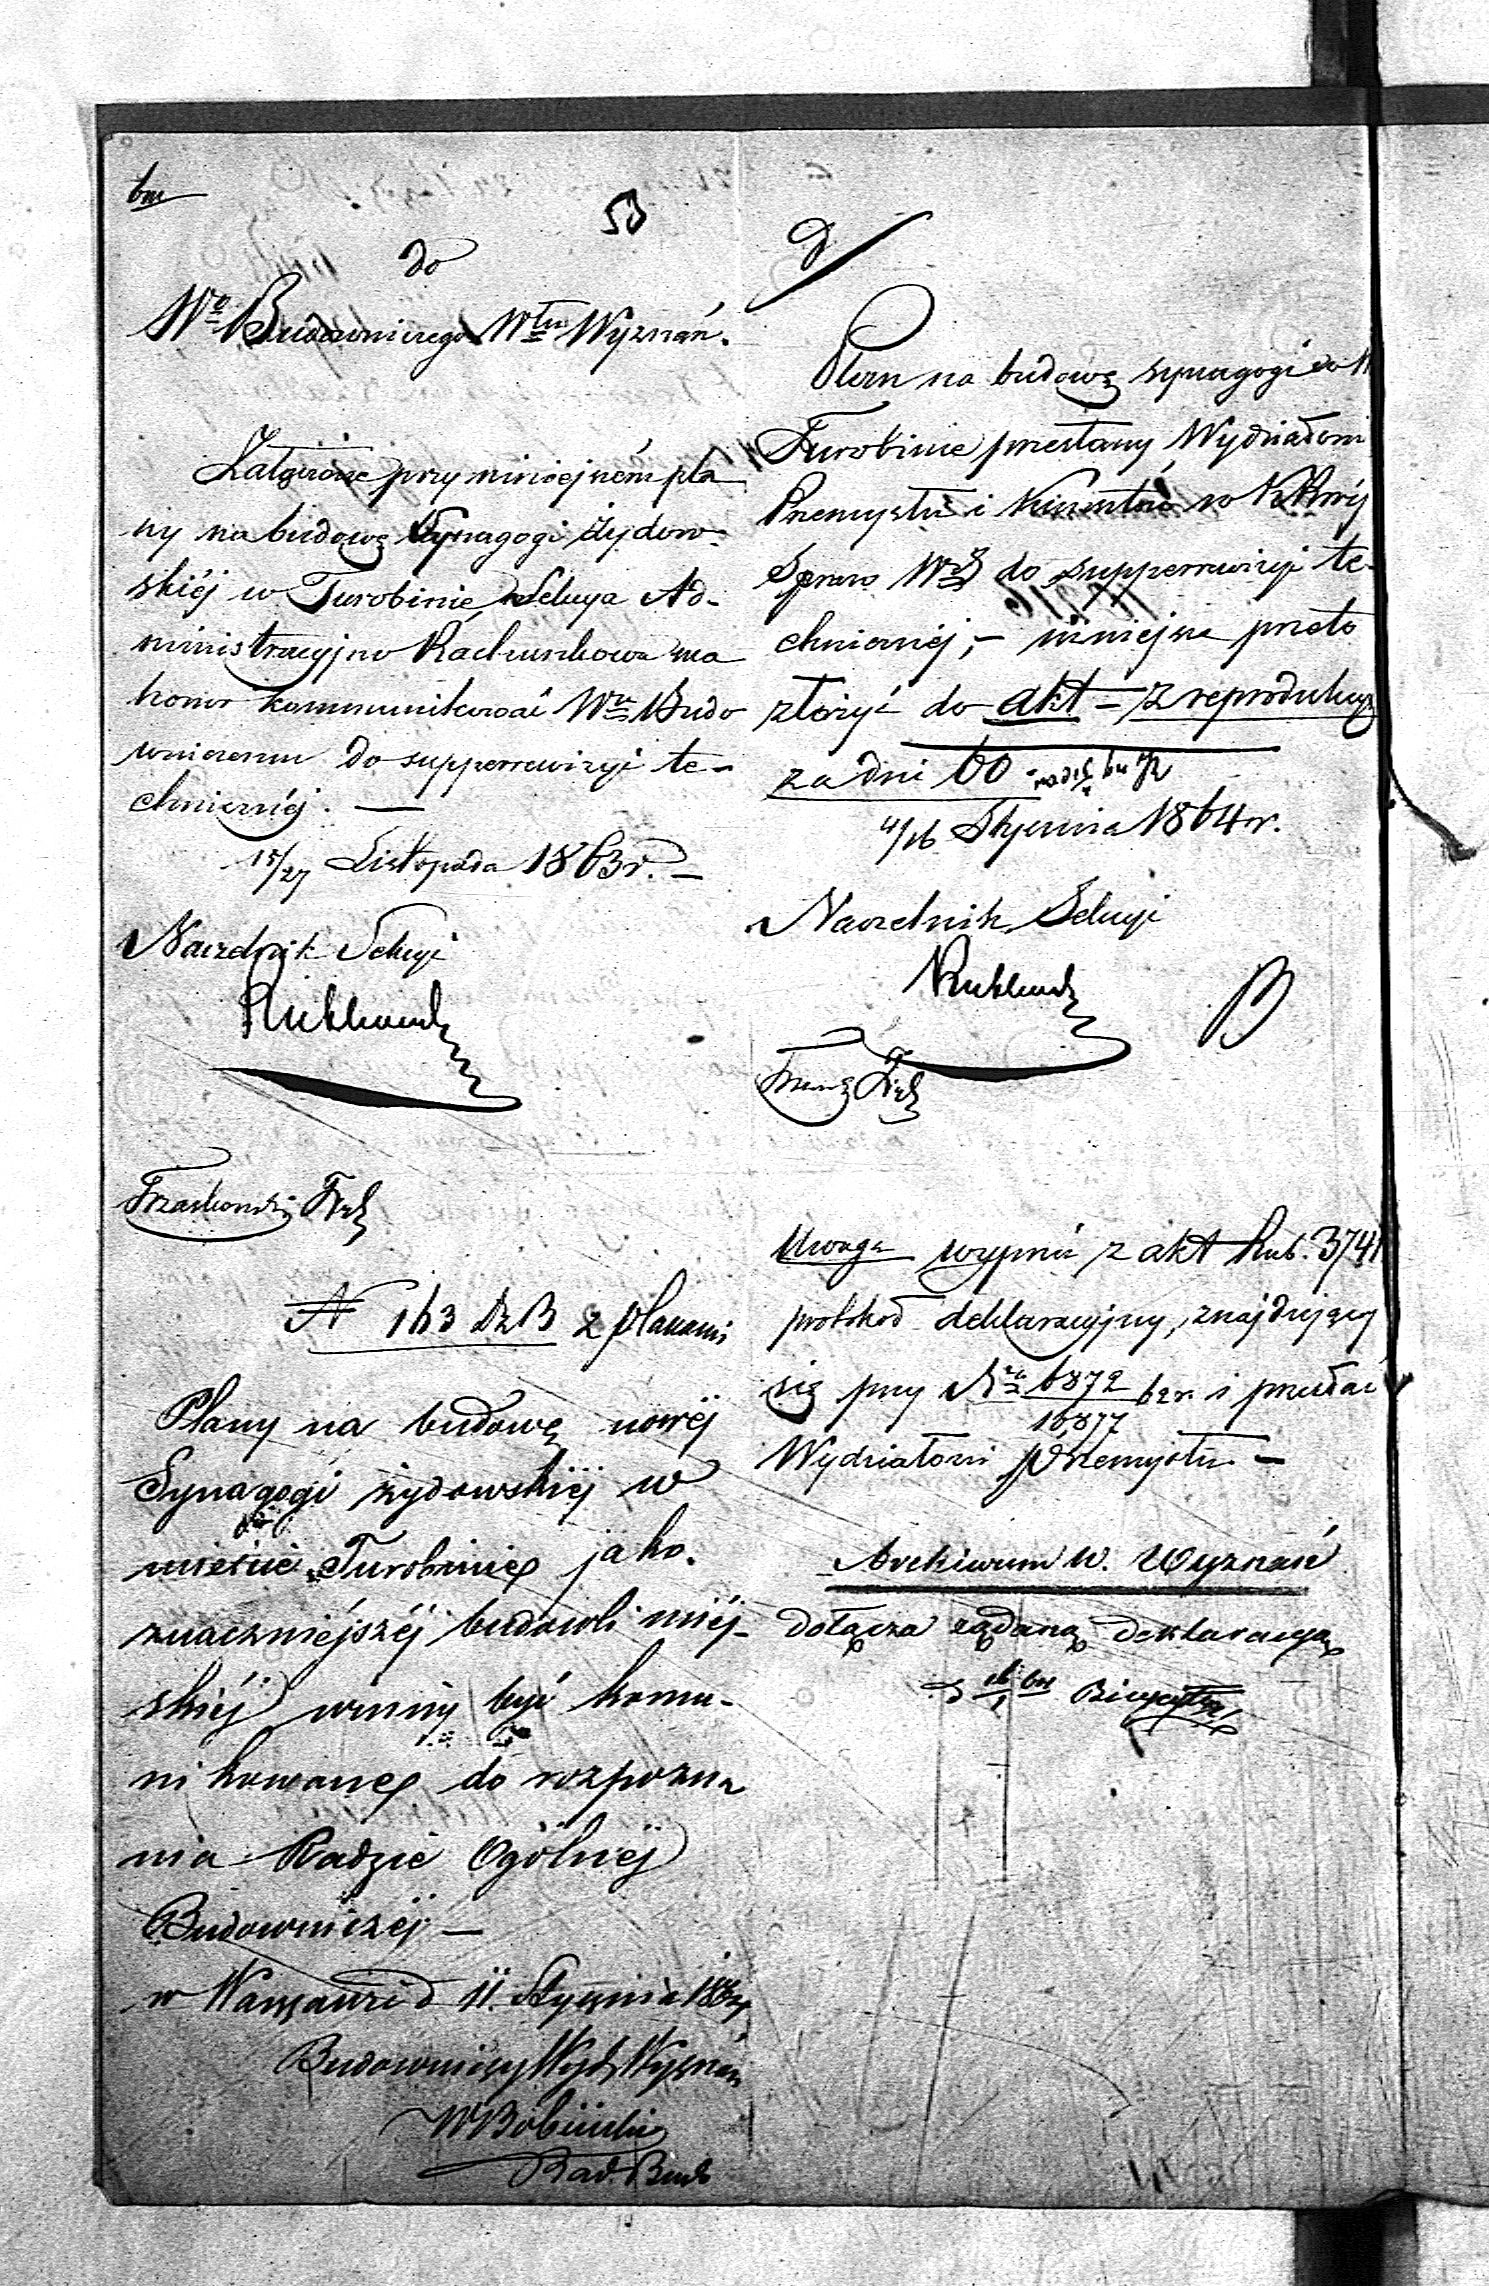 53
do
Wo Budowniczego Włu Wyznań.
Załączone przy niniejszém pla
ny na budowę Synagogi żydow-
skiéj w Turobinie Sekcya Ad-
ministracyjno Rachunkowa ma
honor kommunikować Wu Budo
wniczemu do supperrewizyi te-
chnicznéj. —
15/27 Listopada 1863 r. —
Naczelnik Sekcyi
N 163 DzB z planami
Plany na budowę nowéj
Synagogi żydowskiéj w
mieście Turobinie jako
znaczniéjszéj budowli miéj-
skiéj winny być komu-
nikowane do rozpozna
nia Radzie Ogólnéj
Budowniczéj —
w Warszawie d 11. Stycznia
Budowniczy Wydz Wyznań
Rad. Bud
Plan na budowę synagogi w M
Turobinie przesłany Wydziałowi
Przemysłu i Kunsztów w KRwéj
Spraw Wch do supperrewizyi te-
chnicznéj, — niniejsze przeto
złożyć do akt — z reprodukcyą
za dni 60
4/16 Stycznia 1864 r.
Naczelnik Sekcyi
Uwaga wyjmie z akt Rub. 3741
protokoł deklaracyjny, znajdujący
się przy Nrze 6872/16877 62 r. i przesłać
Wydziałowi Przemysłu —
Archiwum W. Wyznań
dołącza żądaną deklaracyą